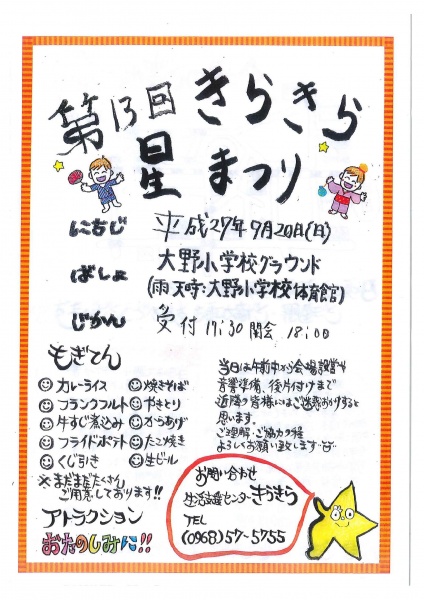 第13回 きらきら
星 まつり
にちじ 平成27年9月20日(日)
ばしょ 大野小学校グラウンド
(雨天時:大野小学校体育館)
じかん 受付 17:30 開会 18:00
もぎてん
カレーライス 焼きそば
フランクフルト やきとり
牛すじ煮込み からあげ
フライドポテト たこ焼き
くじ引き 生ビール
※まだまだたくさん
ご用意しております!!
アトラクション
おたのしみに!!
当日は午前中から会場設営や
音響準備、後片付けまで
近隣の皆様にはご迷惑おかけすると
思います。
ご理解・ご協力の程
よろしくお願い致します
お問い合わせ
生活支援センターきらきら
TEL
(0968)57-5755